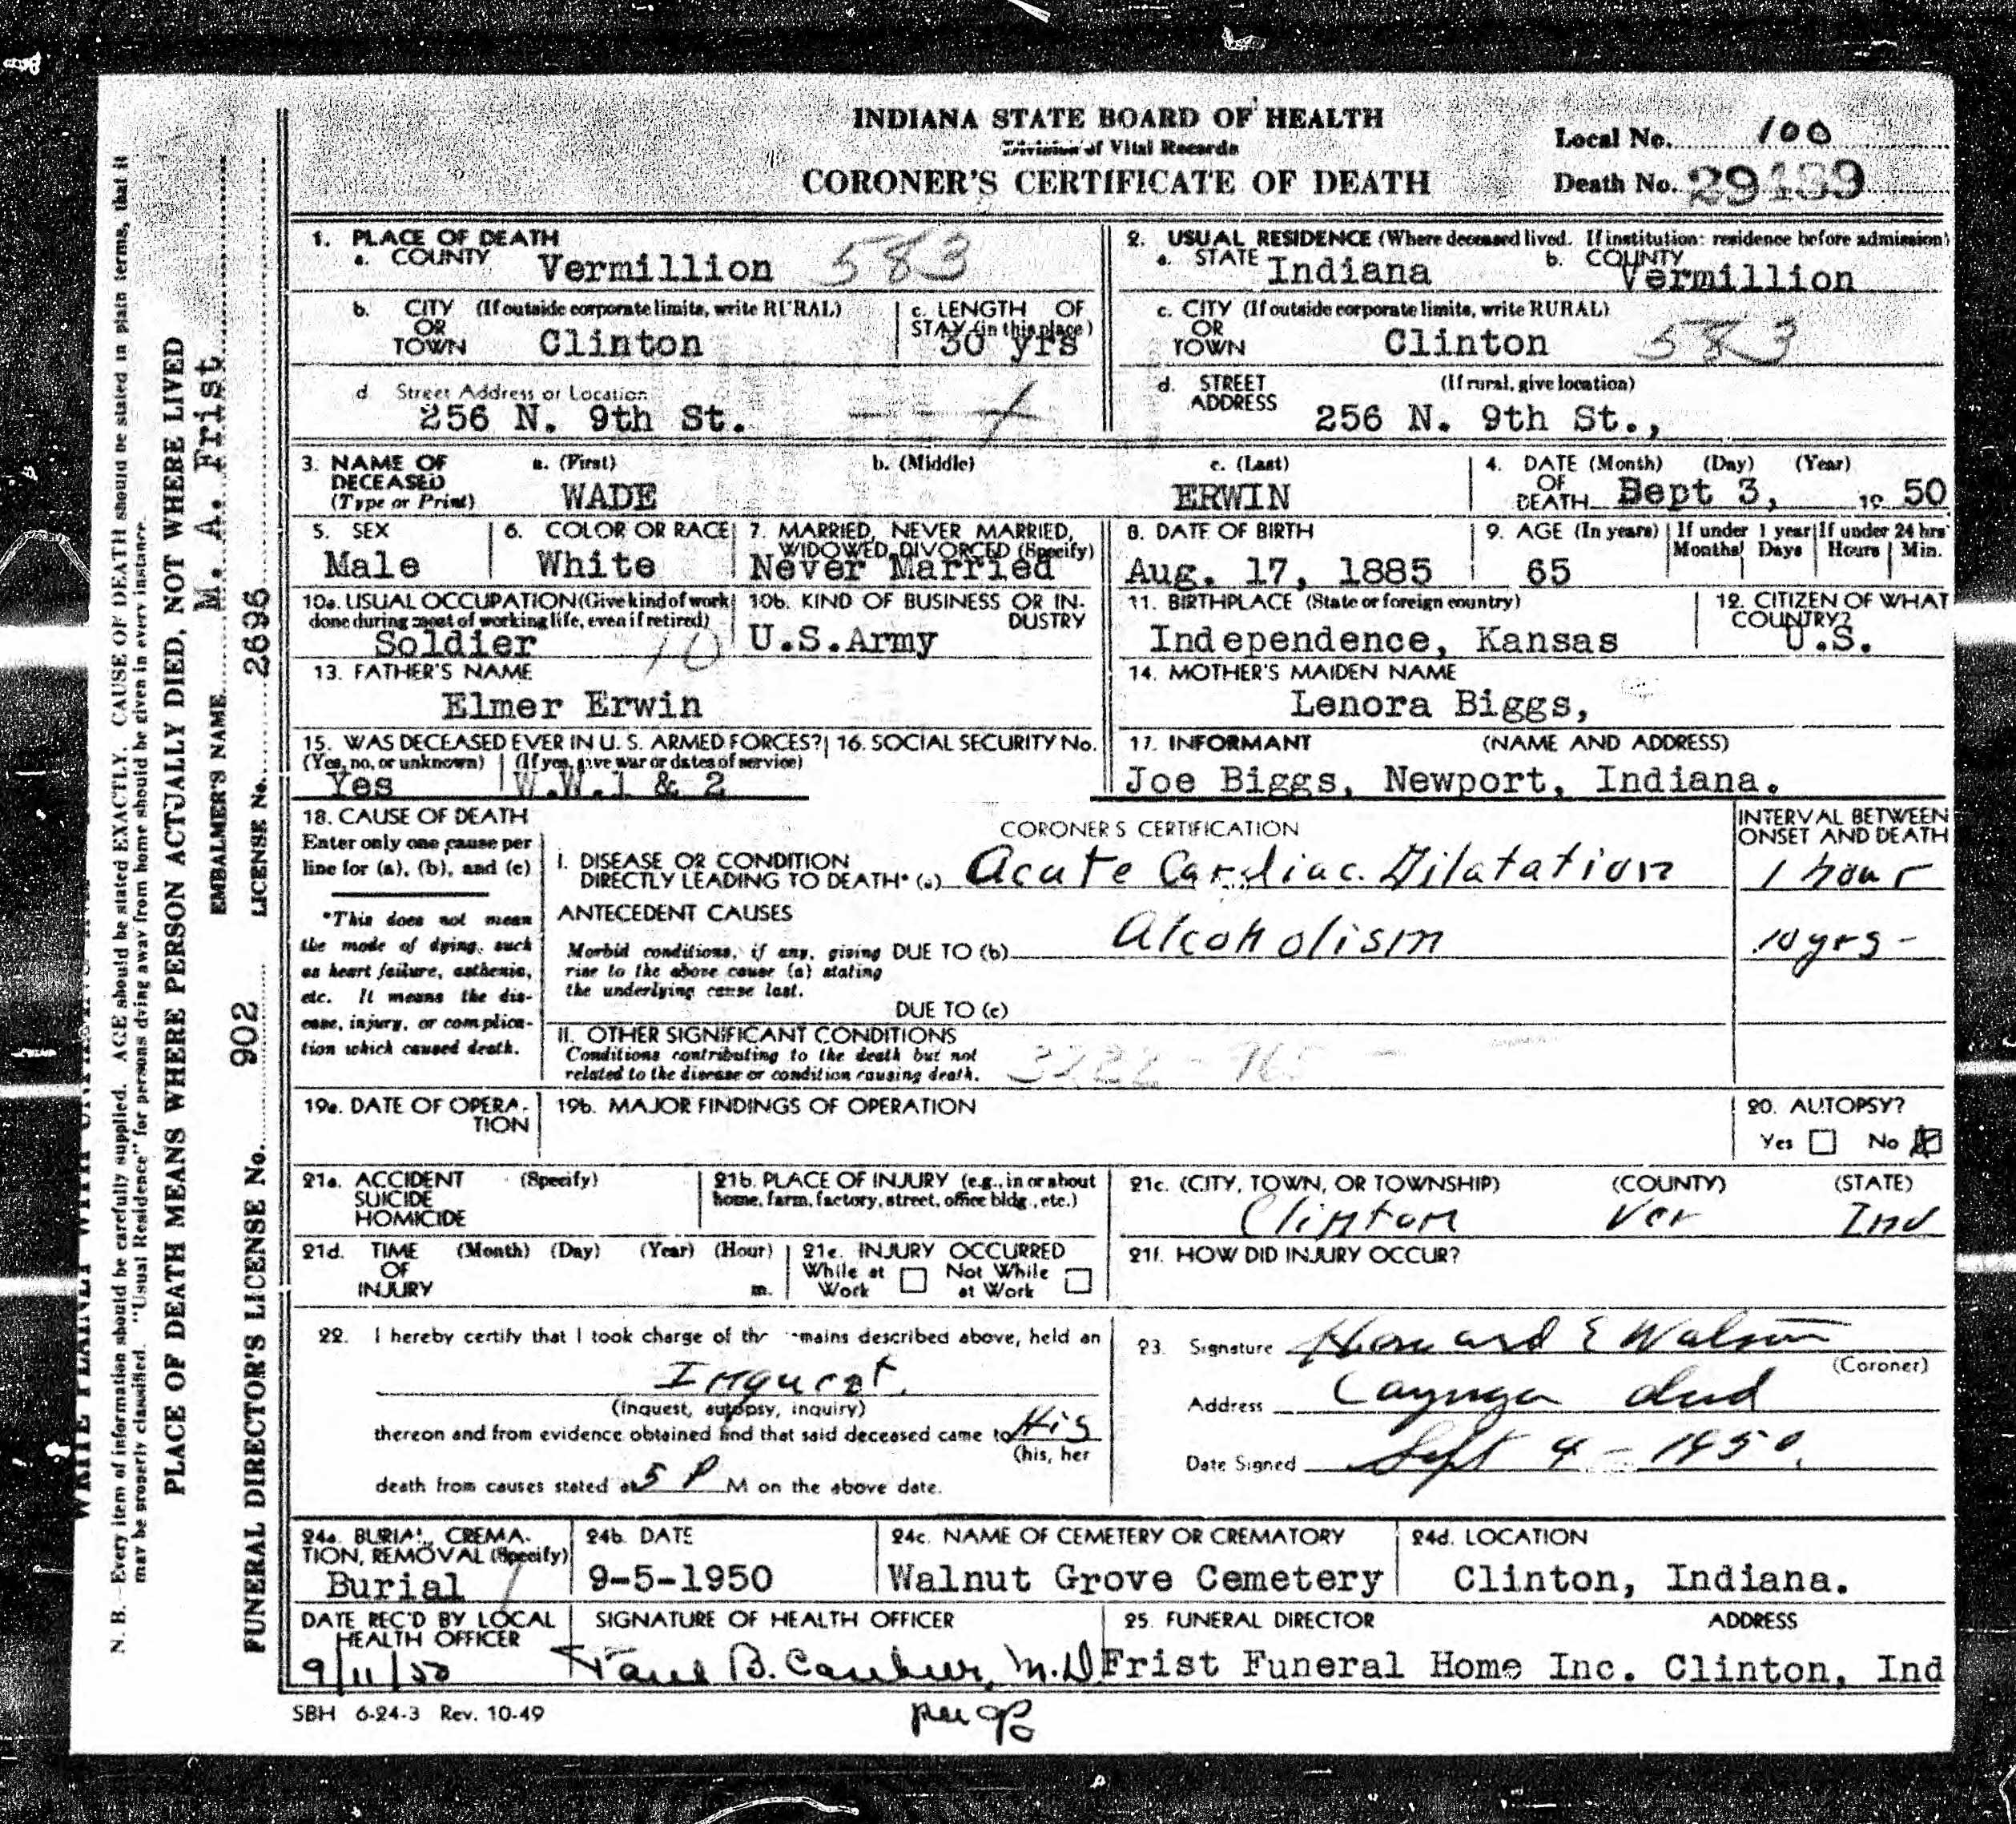 INDIANA STATE BOARD OF HEALTH
Division of Vital Records
CORONER'S CERTIFICATE OF DEATH
Local No. 100
Death No. 29489
1. PLACE OF DEATH
a. COUNTY Vermillion 583
2. USUAL RESIDENCE (Where deceased lived. If institution: residence before admission)
a. STATE Indiana b. COUNTY Vermillion
b. CITY OR TOWN (If outside corporate limits, write RURAL) Clinton
c. LENGTH OF STAY (in this place) 30 yrs
c. CITY OR TOWN (If outside corporate limits, write RURAL) Clinton 583
d Street Address or Location
256 N. 9th St.
d. STREET ADDRESS (If rural, give location)
256 N. 9th St.,
3. NAME OF DECEASED (Type or Print)
a. (First) WADE b. (Middle) c. (Last) ERWIN
4. DATE OF DEATH (Month) (Day) (Year) Sept 3, 19 50
5. SEX Male
6. COLOR OR RACE White
7. MARRIED, NEVER MARRIED, WIDOWED, DIVORCED (Specify) Never Married
8. DATE OF BIRTH Aug. 17, 1885
9. AGE (In years) 65
If under 1 year Months Days
If under 24 hrs Hours Min.
10a. USUAL OCCUPATION (Give kind of work done during most of working life, even if retired) Soldier 10
10b. KIND OF BUSINESS OR INDUSTRY U.S.Army
11. BIRTHPLACE (State or foreign country) Independence, Kansas
12. CITIZEN OF WHAT COUNTRY? U.S.
13. FATHER'S NAME
Elmer Erwin
14. MOTHER'S MAIDEN NAME
Lenora Biggs,
15. WAS DECEASED EVER IN U. S. ARMED FORCES?
(Yes, no, or unknown) Yes
(If yes, give war or dates of service) W.W.1 & 2
16. SOCIAL SECURITY No.
17. INFORMANT (NAME AND ADDRESS)
Joe Biggs, Newport, Indiana.
18. CAUSE OF DEATH
Enter only one cause per line for (a), (b), and (c)
*This does not mean the mode of dying, such as heart failure, asthenia, etc. It means the disease, injury, or complication which caused death.
CORONER'S CERTIFICATION
INTERVAL BETWEEN ONSET AND DEATH
I. DISEASE OR CONDITION DIRECTLY LEADING TO DEATH* (a) Acute Cardiac Dilatation 1 hour
ANTECEDENT CAUSES
Morbid conditions, if any, giving rise to the above cause (a) stating the underlying cause last.
DUE TO (b) Alcoholism 10 yrs -
DUE TO (c)
II. OTHER SIGNIFICANT CONDITIONS
Conditions contributing to the death but not related to the disease or condition causing death.
19a. DATE OF OPERATION
19b. MAJOR FINDINGS OF OPERATION
20. AUTOPSY?
Yes No
21a. ACCIDENT SUICIDE HOMICIDE (Specify)
21b. PLACE OF INJURY (e.g., in or about home, farm, factory, street, office bldg., etc.)
21c. (CITY, TOWN, OR TOWNSHIP) (COUNTY) (STATE)
Clinton Ver Ind
21d. TIME OF INJURY (Month) (Day) (Year) (Hour) m.
21e. INJURY OCCURRED
While at Work Not While at Work
21f. HOW DID INJURY OCCUR?
22. I hereby certify that I took charge of the remains described above, held an
Inquest.
(inquest, autopsy, inquiry)
thereon and from evidence obtained find that said deceased came to His
(his, her
death from causes stated at 5 P M on the above date.
23. Signature Howard E Walson
(Coroner)
Address Cayuga Ind
Date Signed Sept 4 - 1950.
24a. BURIAL, CREMATION, REMOVAL (Specify) Burial
24b. DATE 9-5-1950
24c. NAME OF CEMETERY OR CREMATORY Walnut Grove Cemetery
24d. LOCATION Clinton, Indiana.
DATE REC'D BY LOCAL HEALTH OFFICER 9/11/50
SIGNATURE OF HEALTH OFFICER Paul B. M.D
25. FUNERAL DIRECTOR ADDRESS
Frist Funeral Home Inc. Clinton, Ind
SBH 6-24-3 Rev. 10-49
N. B.—Every item of information should be carefully supplied. AGE should be stated EXACTLY. CAUSE OF DEATH should be stated in plain terms, that it
may be properly classified. "Usual Residence" for persons dying away from home should be given in every instance.
PLACE OF DEATH MEANS WHERE PERSON ACTUALLY DIED, NOT WHERE LIVED
EMBALMER'S NAME M. A. Frist
FUNERAL DIRECTOR'S LICENSE No. 902 LICENSE No. 2696